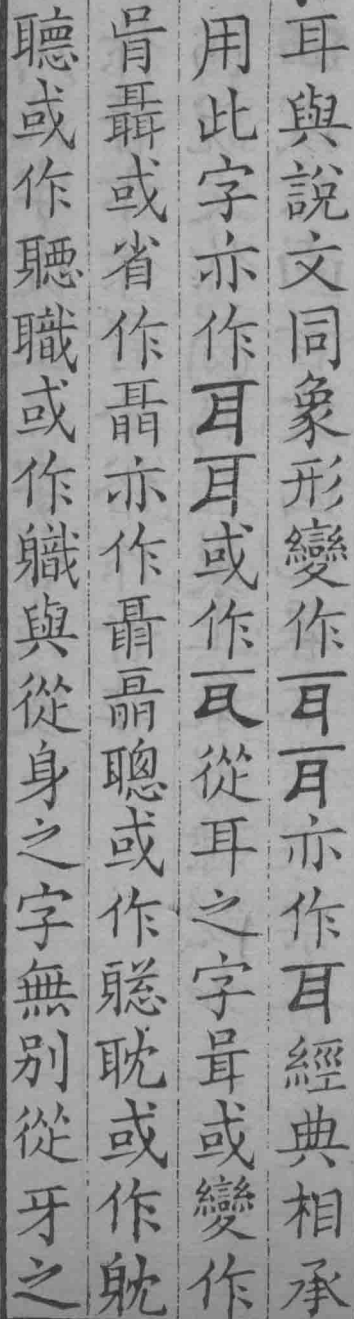 耳與說文同象形變作亦作耳經典相承
用此字亦作耳耳或作從耳之字咠或變作
聶或省作聶亦作聶聰或作聡耽或作躭
聽或作聴職或作軄與從身之字無別從牙之